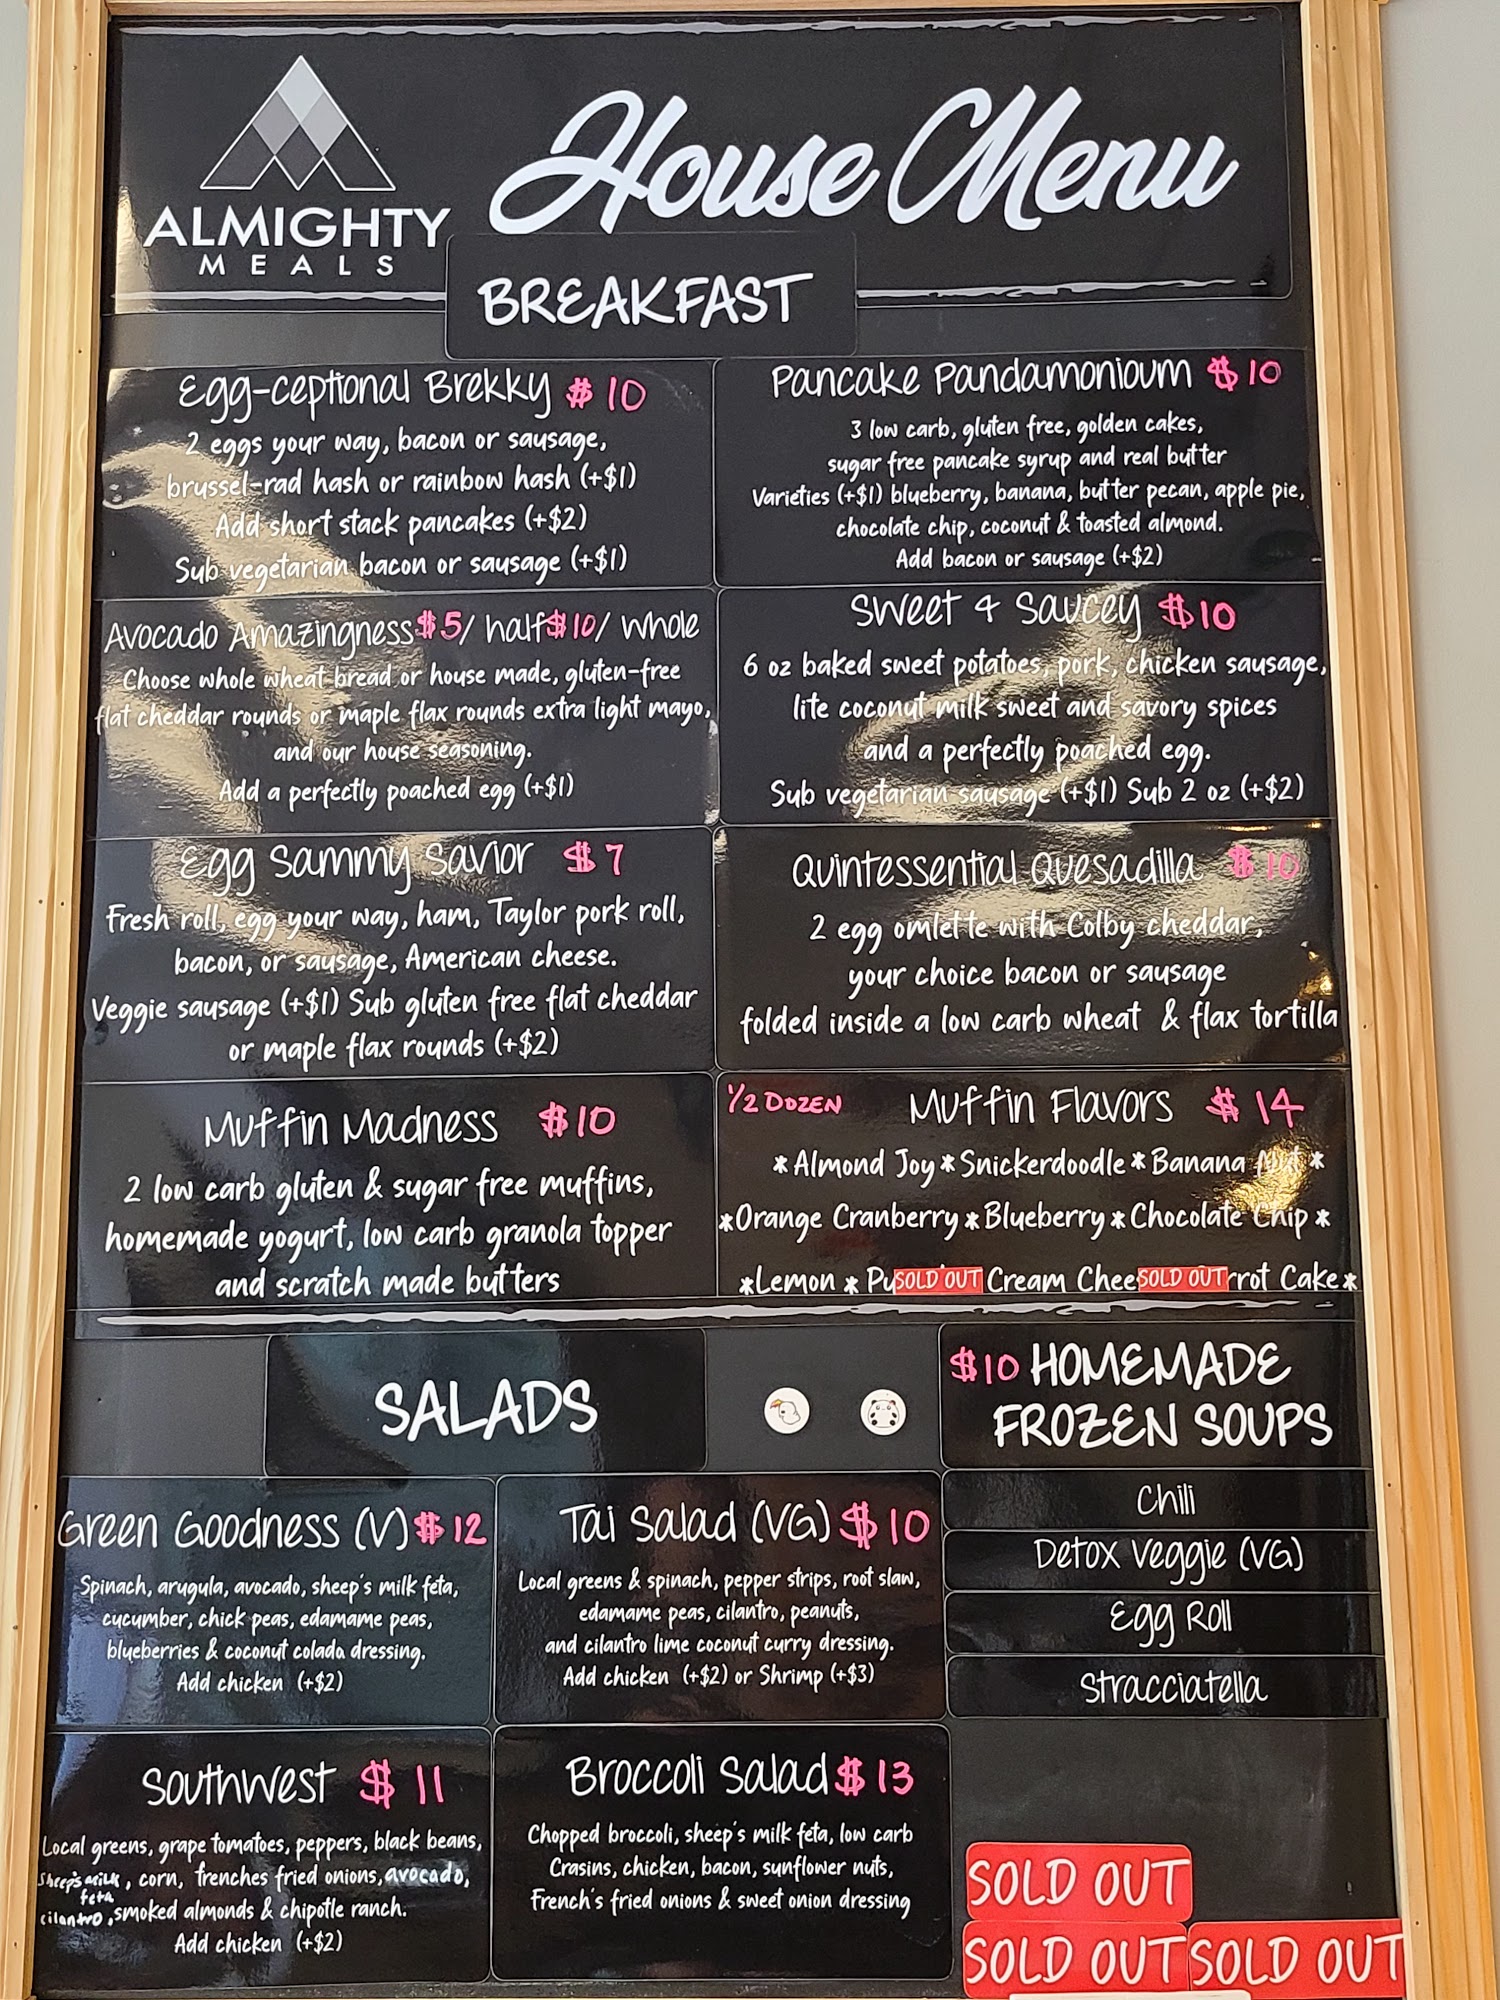 ALMIGHTY
MEALS
House Menu
BREAKFAST
Egg-ceptional Brekky $10
2 eggs your way, bacon or sausage,
brussel-rad hash or rainbow hash (+$1)
Add short stack pancakes (+$2)
Sub vegetarian bacon or sausage (+$1)
Pancake Pandamonioum $10
3 low carb, gluten free, golden cakes,
sugar free pancake syrup and real butter
Varieties (+$1) blueberry, banana, butter pecan, apple pie,
chocolate chip, coconut & toasted almond.
Add bacon or sausage (+$2)
Avocado Amazingness $5/ half $10/ whole
Choose whole wheat bread or house made, gluten-free
flat cheddar rounds or maple flax rounds extra light mayo,
and our house seasoning.
Add a perfectly poached egg (+$1)
Sweet & Saucey $10
6 oz baked sweet potatoes, pork, chicken sausage,
lite coconut milk sweet and savory spices
and a perfectly poached egg.
Sub vegetarian sausage (+$1) Sub 2 oz (+$2)
Egg Sammy Savior $7
Fresh roll, egg your way, ham, Taylor pork roll,
bacon, or sausage, American cheese.
Veggie sausage (+$1) Sub gluten free flat cheddar
or maple flax rounds (+$2)
Quintessential Quesadilla $10
2 egg omlette with Colby cheddar,
your choice bacon or sausage
folded inside a low carb wheat & flax tortilla
Muffin Madness $10
2 low carb gluten & sugar free muffins,
homemade yogurt, low carb granola topper
and scratch made butters
1/2 DOZEN Muffin Flavors $14
*Almond Joy*Snickerdoodle*Banana Nut*
*Orange Cranberry*Blueberry*Chocolate Chip*
*Lemon * Pu SOLD OUT Cream Chee SOLD OUT rrot Cake*
SALADS
Green Goodness (V) $12
Spinach, arugula, avocado, sheep's milk feta,
cucumber, chick peas, edamame peas,
blueberries & coconut colada dressing.
Add chicken (+$2)
Tai Salad (VG) $10
Local greens & spinach, pepper strips, root slaw,
edamame peas, cilantro, peanuts,
and cilantro lime coconut curry dressing.
Add chicken (+$2) or Shrimp (+$3)
Southwest $11
Local greens, grape tomatoes, peppers, black beans,
sheep's milk feta, corn, frenches fried onions, avocado,
cilantro, smoked almonds & chipotle ranch.
Add chicken (+$2)
Broccoli Salad $13
Chopped broccoli, sheep's milk feta, low carb
Crasins, chicken, bacon, sunflower nuts,
French's fried onions & sweet onion dressing
$10 HOMEMADE
FROZEN SOUPS
Chili
Detox Veggie (VG)
Egg Roll
Stracciatella
SOLD OUT
SOLD OUT SOLD OUT